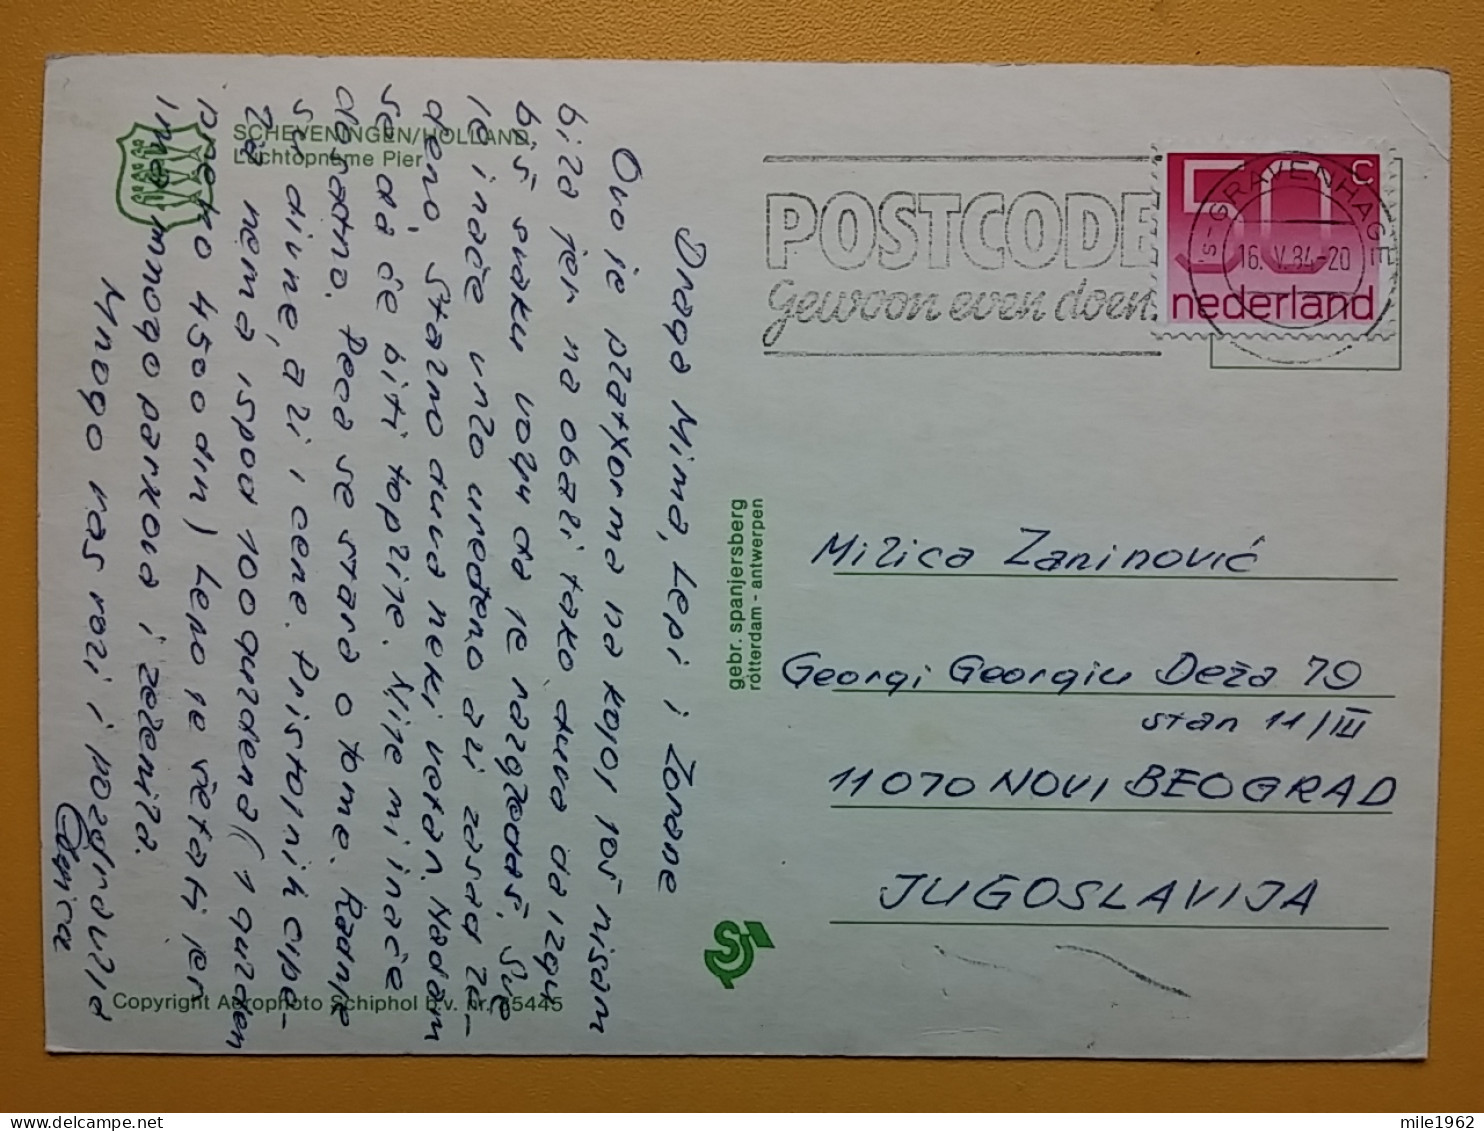 SCHEVENINGEN/HOLLAND
Luchtopname Pier
Draga Mima, Lepi i Zorane
Ovo je platforma na kojoj još nisam
bila jer na obali tako duva da izgu-
biš svaku volju da je razgledaš. Sve
je inače vrlo uređeno ali zasad ze-
deno, stalno duva neki vetar. Nadam
se da će biti toplije. Nije mi inače
dosadno. Peca se stara o tome. Radnje
su divne, ali i cene. Pristojnih cipe-
la nema ispod 100 guldena (1 gulden
preko 4500 din) Lepo je šetati jer
ima mnogo parkova i zelenila.
Mnogo vas voli i pozdravlja
Copyright Aerophoto Schiphol b.v. nr. 85445
gebr. spanjersberg
rotterdam - antwerpen
POSTCODE
gewoon even doen.
50 c
nederland
's-GRAVENHAGE
16. V. 84-20
Milica Zaninović
Georgi Georgiu Deža 79
stan 11/III
11070 NOVI BEOGRAD
JUGOSLAVIJA
mile1962